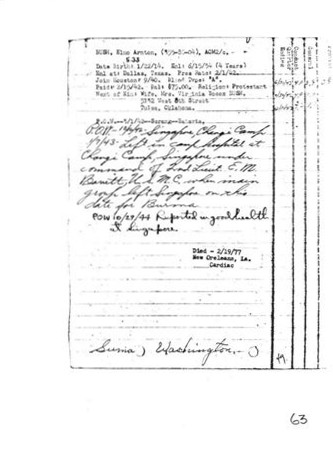 BUSH, Elmo Arnton, (355-85-04), ACM2/c,
Date Birth: 1/22/14. Enl: 6/15/54 (4 Years)
Enl at: Dallas, Texas. Pres Rate: 2/1/42.
Join Houston: 9/40. Blood Type: "A".
Paid: 2/15/42. Bal: $75.00. Religion: Protestant
Next of Kin: Wife, Mrs. Virginia
3152 West 8th Street
Tulsa, Oklahoma.
P.O.W.-3/1/42-Serang-Batavia.
P.O.W. Singapore, Change Camp
1/7/43 - Left in camp hospital at
Change Camp, Singapore under
command of 2nd Lieut E. M.
Barrett, U.S.M.C. when main
group left Singapore on this
date for Burma
POW 10/29/44 Reported in good health
at Singapore.
Died - 2/19/77
New Orleans, La.
Cardiac
Washington
63